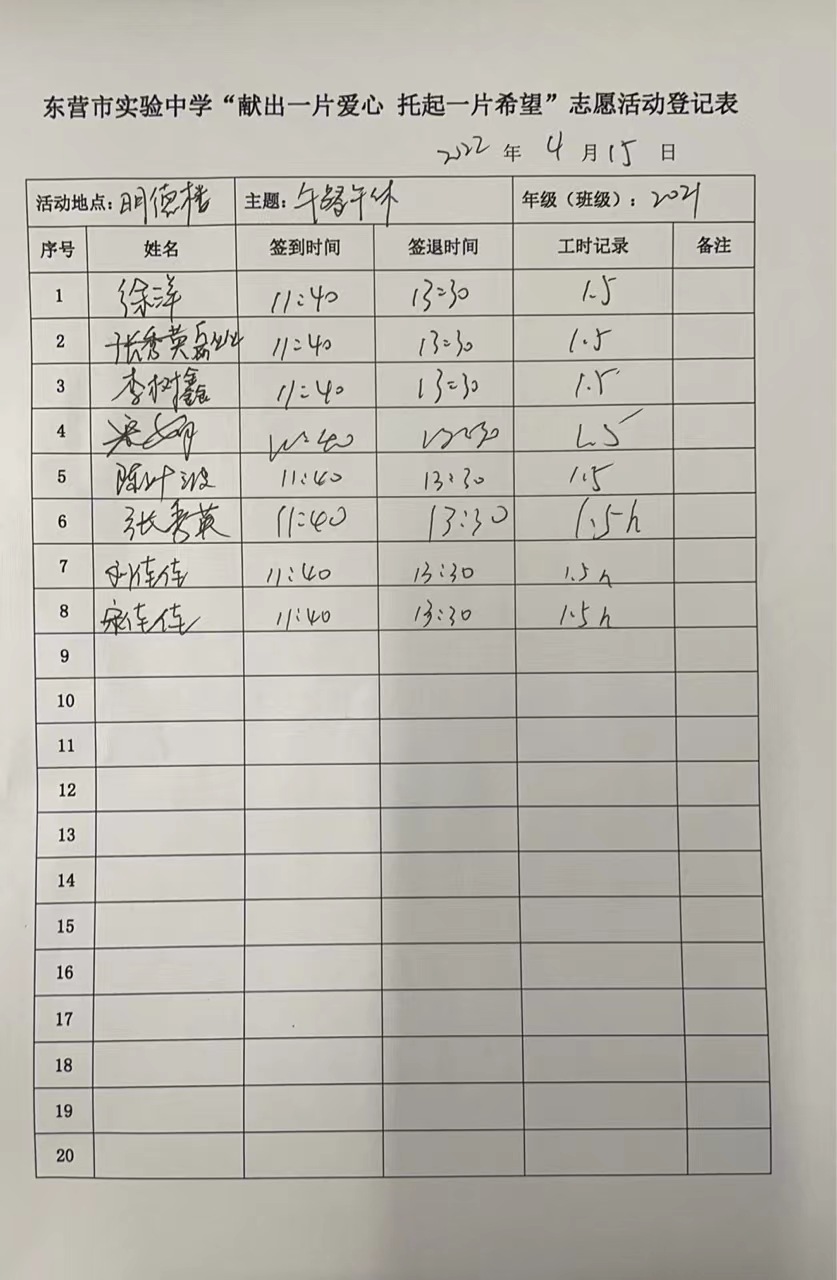 东营市实验中学“献出一片爱心 托起一片希望”志愿活动登记表
2022 年 4 月 15 日
活动地点: 明德楼 主题: 午餐午休 年级（班级）: 2021
序号 姓名 签到时间 签退时间 工时记录 备注
1 徐洋 11:40 13:30 1.5
2 张秀英 11:40 13:30 1.5
3 李树鑫 11:40 13:30 1.5
4 11:40 13:30 1.5
5 陈叶波 11:40 13:30 1.5
6 张秀英 11:40 13:30 1.5h
7 刘佳佳 11:40 13:30 1.5h
8 宋佳佳 11:40 13:30 1.5h
9
10
11
12
13
14
15
16
17
18
19
20